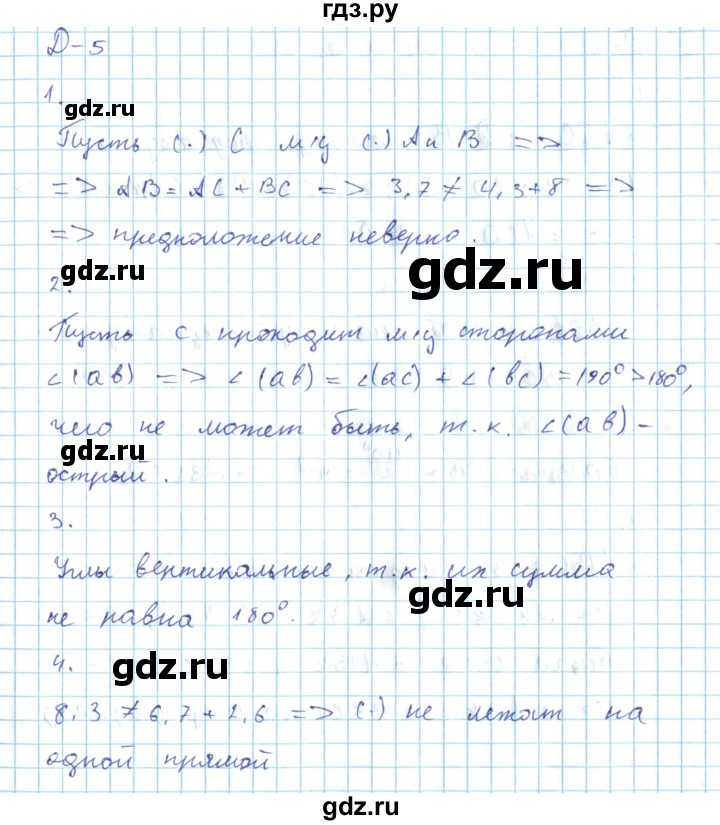 гдз.ру
Д-5
1.
gdz.ru
Пусть (·) C м/у (·) A и B =>
=> AB = AC + BC => 3,7 ≠ 4,3+8 =>
=> предположение неверно.
gdz.ru
gdz.ru
2.
Пусть c проходит м/у сторонами
∠(ab) => ∠(ab) = ∠(ac) + ∠(bc) = 190° > 180°,
чего не может быть, т.к. ∠(ab) -
gdz.ru
острый.
3.
Углы вертикальные, т.к. их сумма
gdz.ru
не равна 180°.
4.
gdz.ru
8,3 ≠ 6,7 + 2,6 => (·) не лежат на
одной прямой
gdz.ru